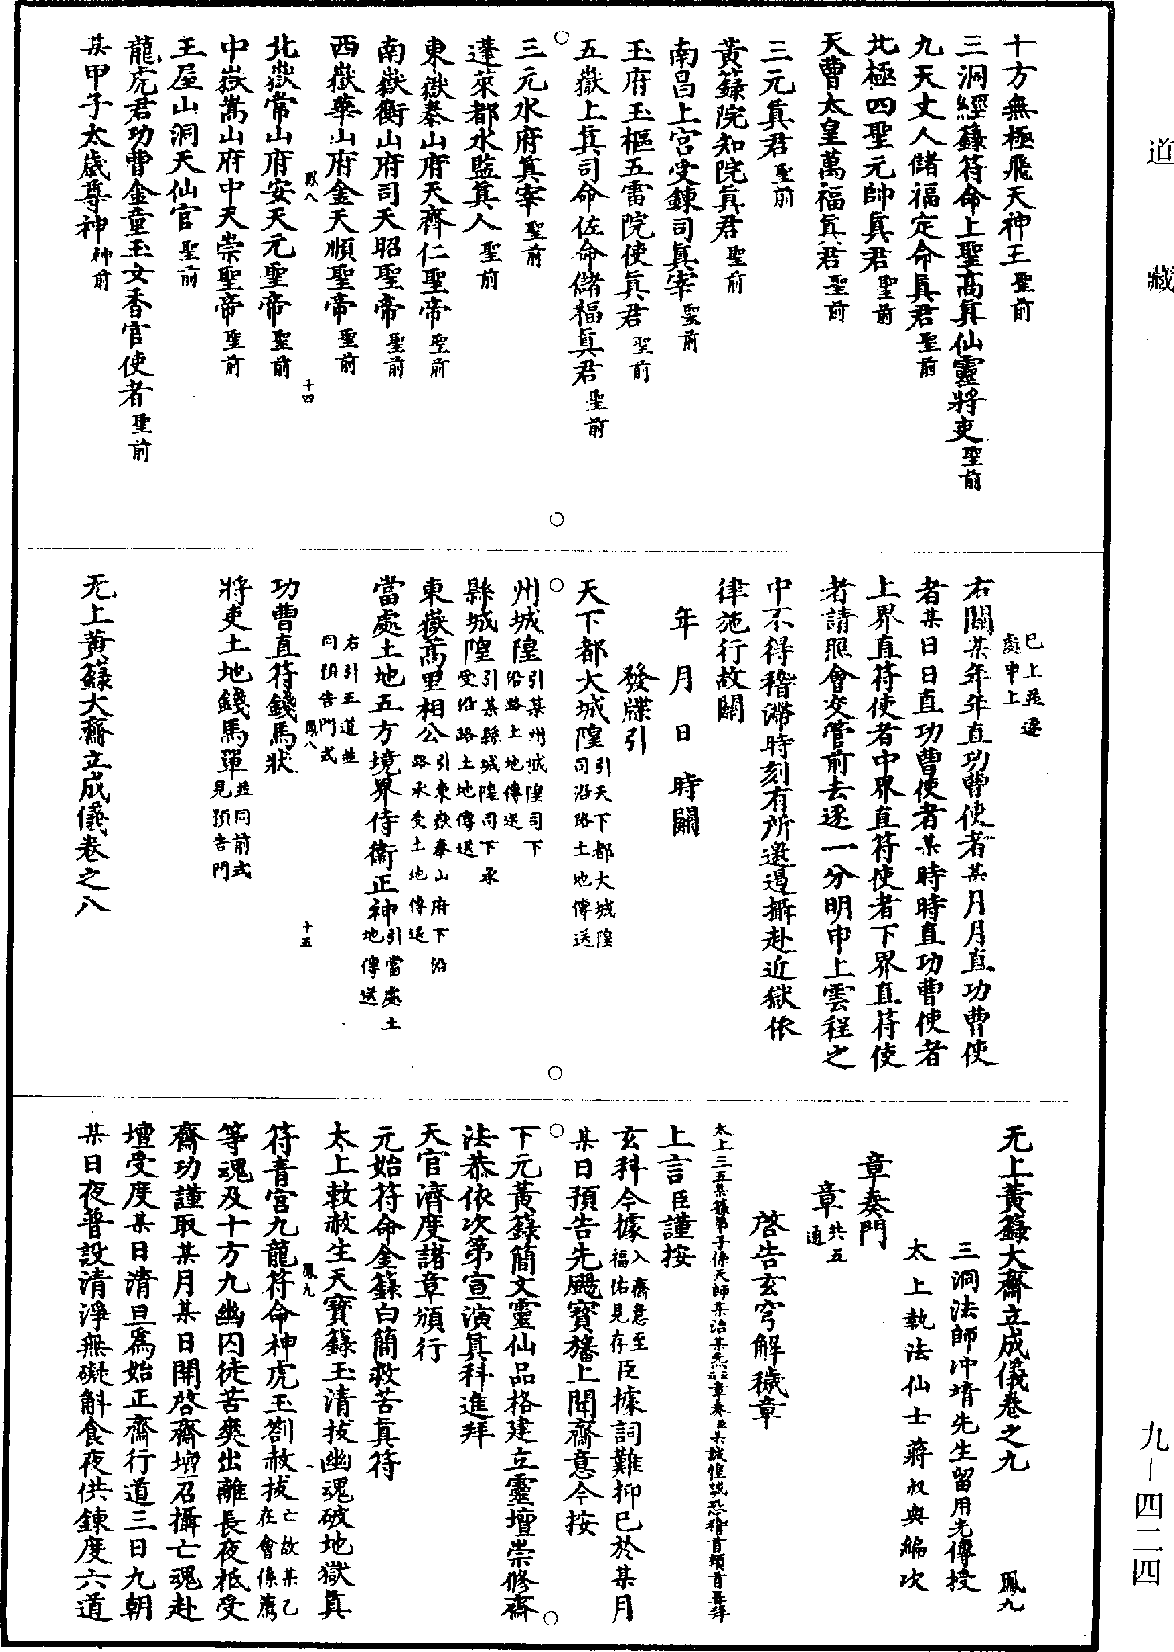 道藏
十方無極飛天神王聖前
三洞經籙符命上聖高真仙靈將吏聖前
九天丈人儲福定命真君聖前
北極四聖元帥真君聖前
天曹太皇萬福真君聖前
三元真君聖前
黃籙院知院真君聖前
南昌上宮受鍊司真宰聖前
玉府玉樞五雷院使真君聖前
五嶽上真司命佐命儲福真君聖前
三元水府真宰聖前
蓬萊都水監真人聖前
東嶽泰山府天齊仁聖帝聖前
南嶽衡山府司天昭聖帝聖前
西嶽華山府金天順聖帝聖前
鳳八
十四
北嶽常山府安天元聖帝聖前
中嶽嵩山府中天崇聖帝聖前
王屋山洞天仙官聖前
龍虎君功曹金童玉女香官使者聖前
某甲子太歲尊神神前
已上並遞
處申上
右關某年年直功曹使者某月月直功曹使
者某日日直功曹使者某時時直功曹使者
上界直符使者中界直符使者下界直符使
者請照會交管前去逐一分明申上雲程之
中不得稽滯時刻有所違遏攝赴近獄依
律施行故關
年月日時關
發牒引
天下都大城隍引天下都大城隍
司沿路土地傳送
州城隍引某州城隍司下
沿路上地傳送
縣城隍引某縣城隍司下承
受沿路土地傳送
東嶽蒿里相公引東嶽泰山府下沿
路承受土地傳送
當處土地五方境界侍衛正神引當處土
地傳送
右引五道並
同預告門式
鳳八
十五
功曹直符錢馬狀
將吏土地錢馬單並同前式
見預告門
无上黃籙大齋立成儀卷之八
无上黃籙大齋立成儀卷之九
鳳九
三洞法師沖靖先生留用光傳授
太上執法仙士蔣叔輿編次
章奏門
章共五
通
啓告玄穹解穢章
太上三五某籙弟子係天師某治某炁章奏臣某誠惶誠恐稽首頓首再拜
上言臣謹按
玄科今據入齋意至
福佑見存臣據詞難抑已於某月
某日預告先颺寶旛上聞齋意今按
下元黃籙簡文靈仙品格建立靈壇崇修齋
法恭依次第宣演真科進拜
天官濟度諸章頒行
元始符命金籙白簡救苦真符
太上敕赦生天寶籙玉清拔幽魂破地獄真
鳳九
一
符青宮九龍符命神虎玉劄赦拔亡故某乙
在會係薦
等魂及十方九幽囚徒苦爽出離長夜祗受
齋功謹取某月某日開啓齋壇召攝亡魂赴
壇受度某日清旦爲始正齋行道三日九朝
某日夜普設清淨無礙斛食夜供鍊度六道
九—四二四